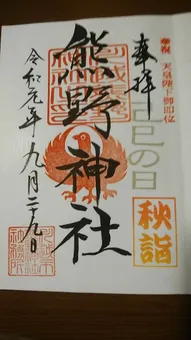 奉祝 天皇陛下御即位
奉拝
己巳の日
秋詣
熊野神社
令和元年九月二十九日